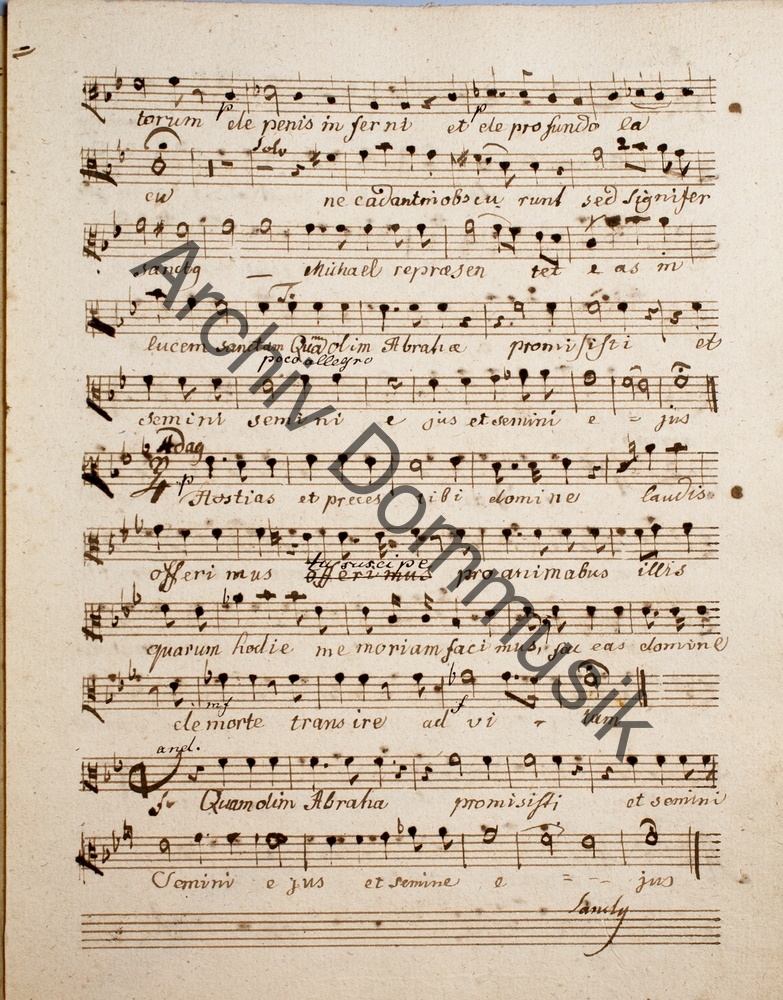 torum p de penis in ferni et p de profundo la
Solo
cu ne cadant in obscu runt sed signifer
sanctq — Michael repræsen tet e as in
T.
lucem sanctam Quam olim Abrahæ promisisti et
poco allegro
semini semini e jus et semini e - jus
Adag
p Hostias et preces tibi domine laudis
tu suscipe
offerimus offerimus pro animabus illis
quarum hodie memoriam facimus, fac eas domine
mf f
de morte transire ad vi - tam
and.
f Quam olim Abraha promisisti et semini
Semini e jus et semine e = - - jus
Sanctq
Archiv Dommusik